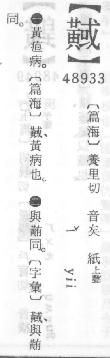 48933
〔篇海〕養里切 音矣 紙上聲
ㄧˇ
yii
❶黃疸病。〔篇海〕黃病也。❷與同。〔字彙〕與
同。